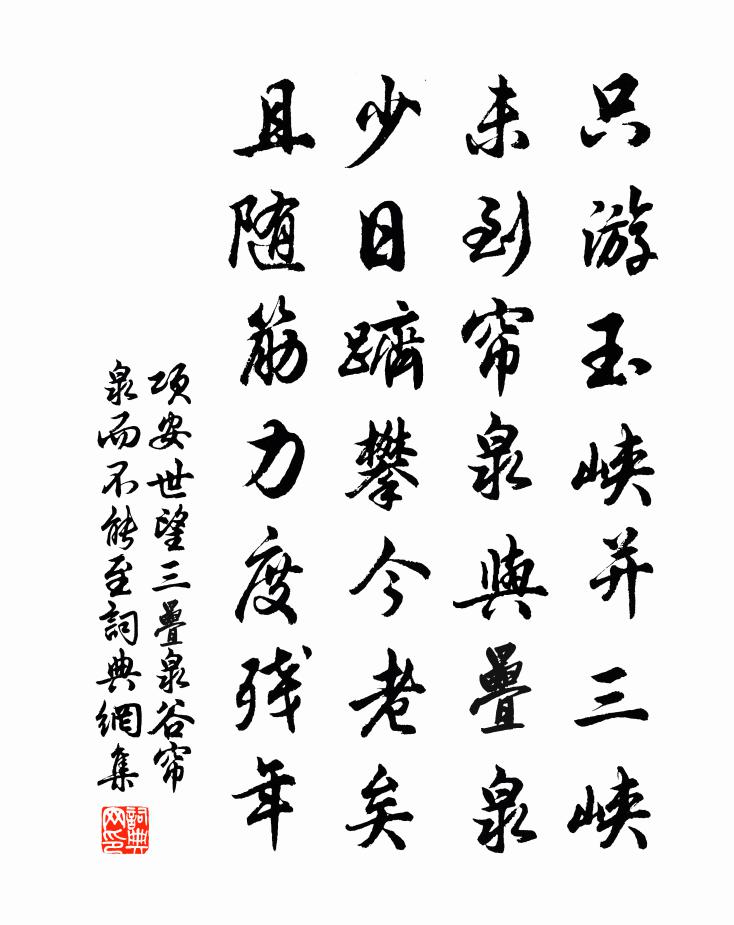 只游玉峡并三峡
未到帘泉與疊泉
少日躋攀今老矣
且随筋力度残年
项安世望三疊泉谷帘
泉而不能至詞典網集
詞典网印